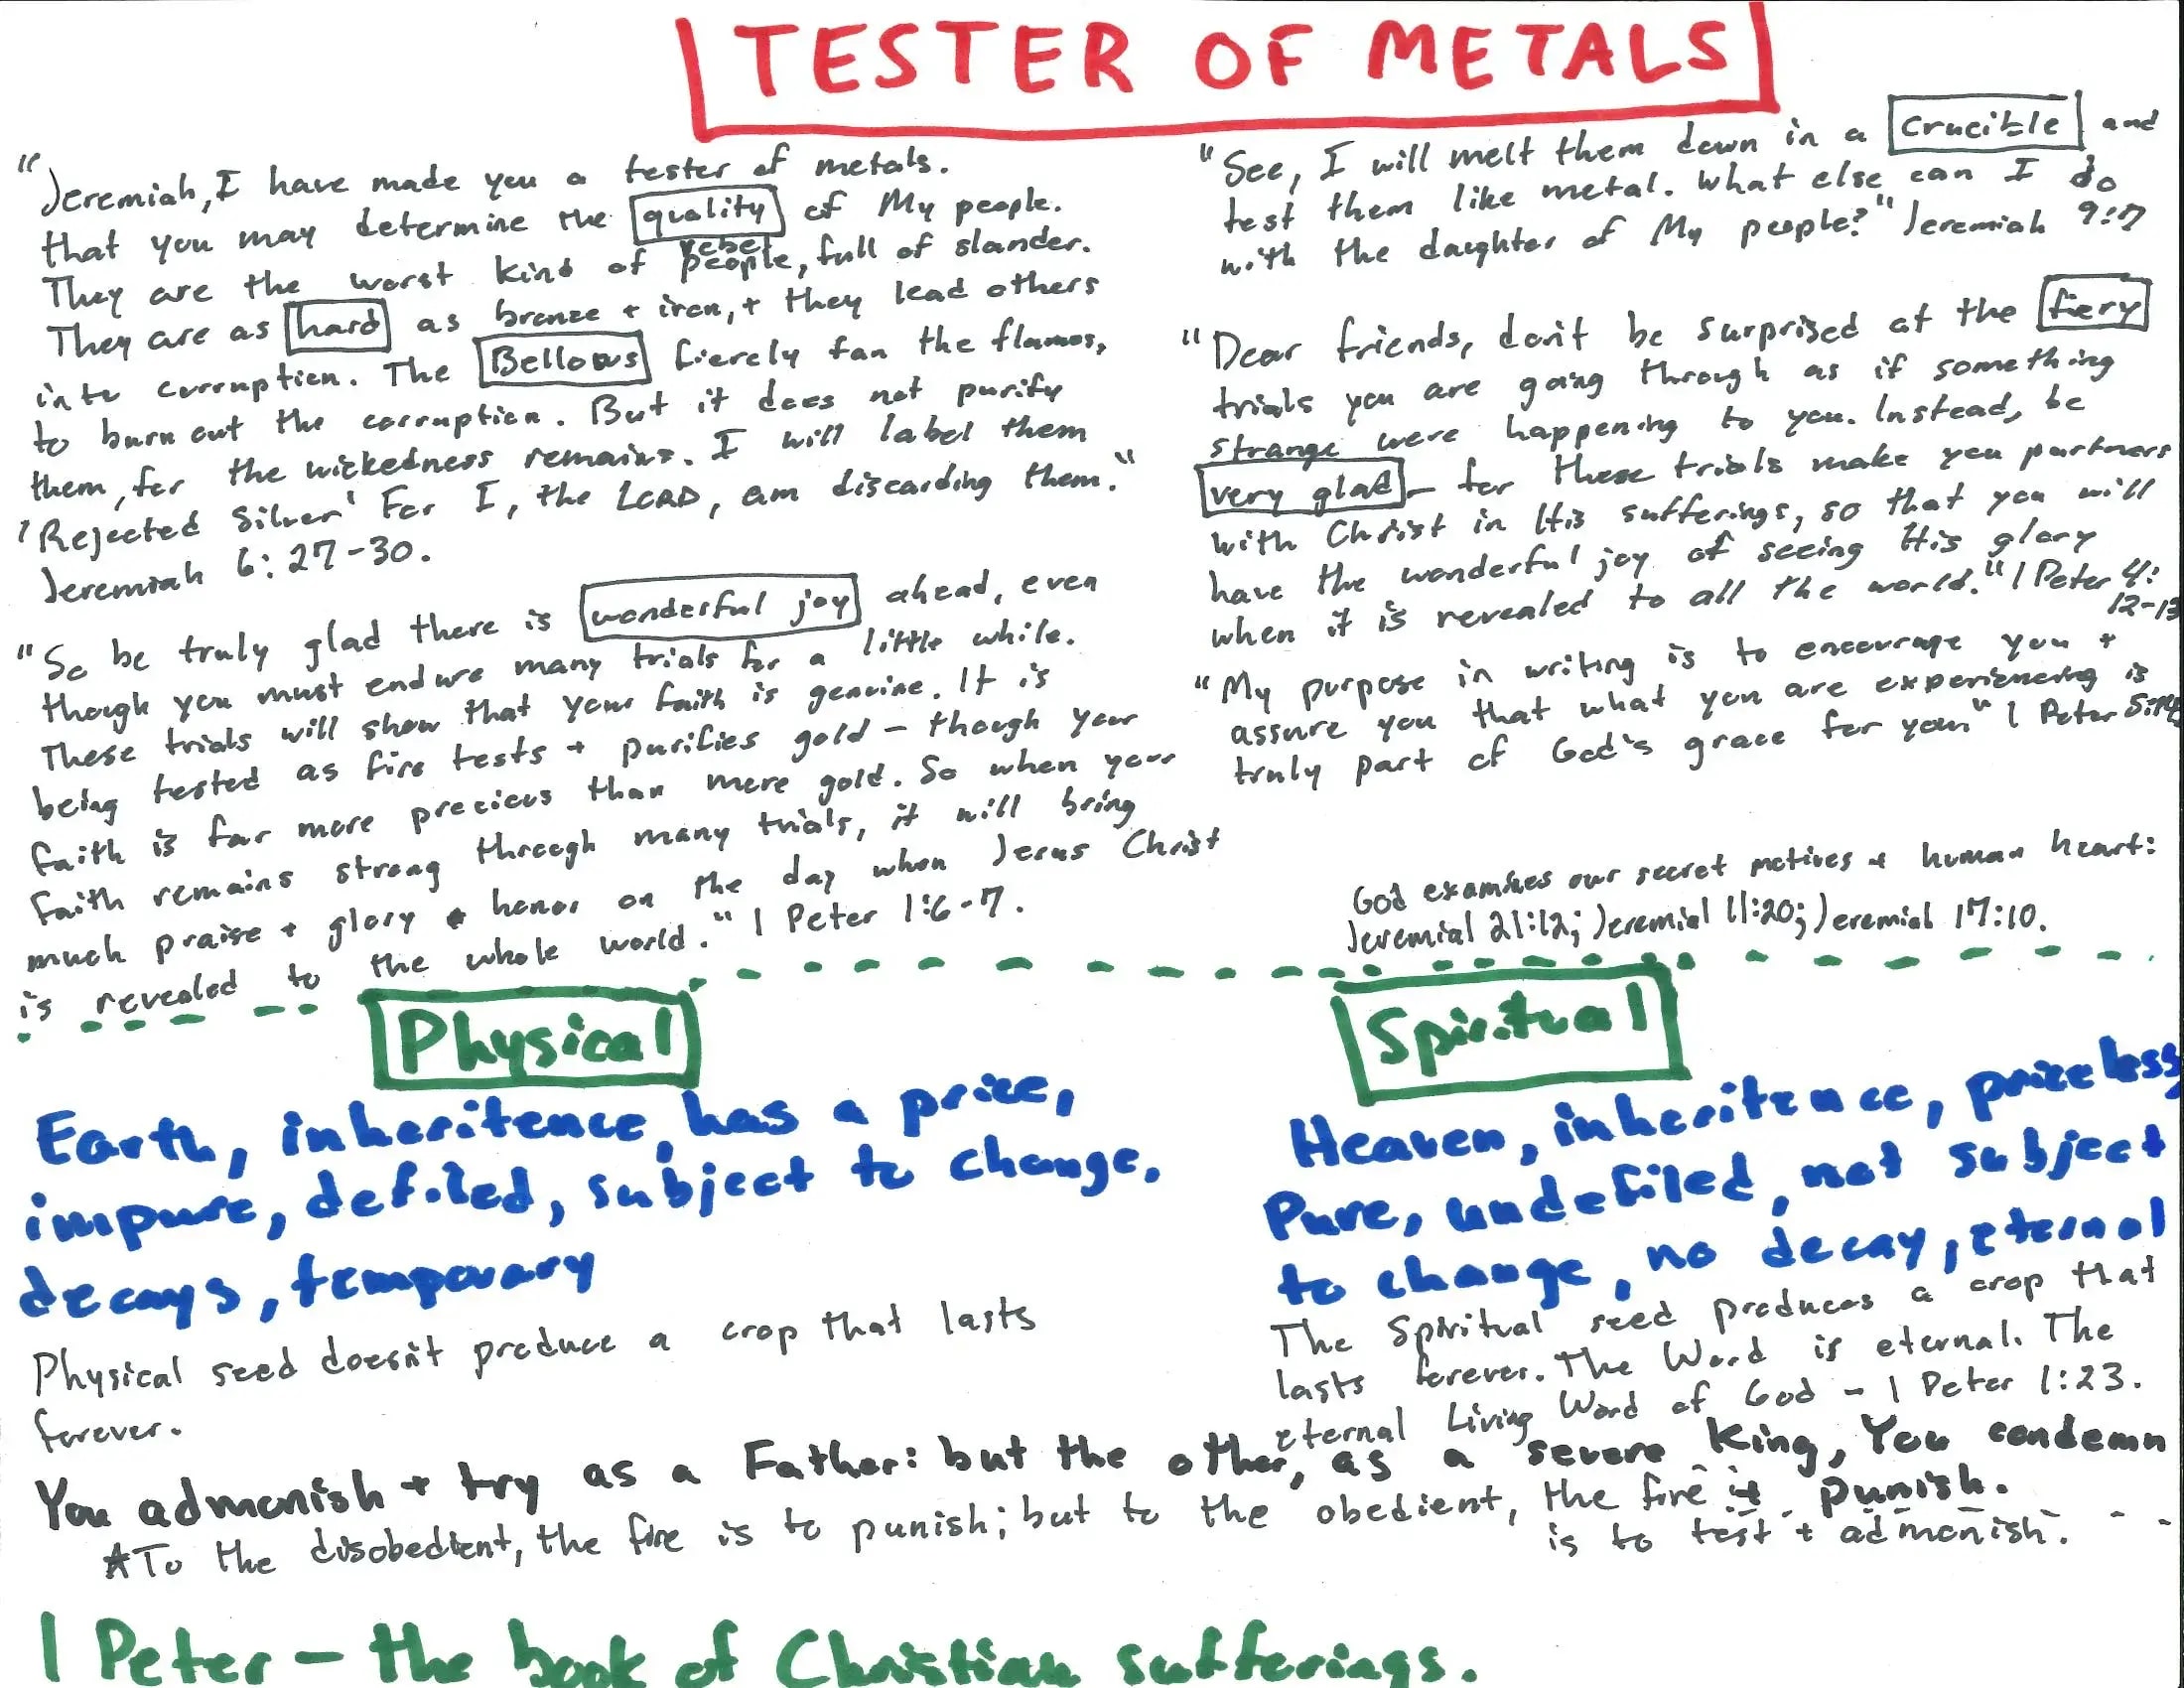 TESTER OF METALS
"Jeremiah, I have made you a tester of metals.
that you may determine the quality of My people.
They are the worst kind of rebel people, full of slander.
They are as hard as bronze + iron, + they lead others
into corruption. The Bellows fierely fan the flames,
to burn out the corruption. But it does not purify
them, for the wickedness remains. I will label them
'Rejected Silver' For I, the LORD, am discarding them."
Jeremiah 6:27-30.
"So be truly glad there is wonderful joy ahead, even
though you must endure many trials for a little while.
These trials will show that your faith is genuine. It is
being tested as fire tests + purifies gold - though your
faith is far more precious than mere gold. So when your
faith remains strong through many trials, it will bring
much praise + glory + honor on the day when Jesus Christ
is revealed to the whole world." 1 Peter 1:6-7.
"See, I will melt them down in a crucible and
test them like metal. What else can I do
with the daughter of My people?" Jeremiah 9:7
"Dear friends, don't be surprised at the fiery
trials you are going through as if something
strange were happening to you. Instead, be
very glad - for these trials make you partners
with Christ in His sufferings, so that you will
have the wonderful joy of seeing His glory
when it is revealed to all the world." 1 Peter 4:
12-13
"My purpose in writing is to encourage you +
assure you that what you are experiencing is
truly part of God's grace for you" 1 Peter
God examines our secret motives + human heart:
Jeremial 21:12; Jeremial 11:20; Jeremial 17:10.
Physical
Earth, inheritence, has a price,
impure, defiled, subject to change,
decays, temporary
Physical seed doesn't produce a crop that lasts
forever.
Spiritual
Heaven, inheritence, priceless
Pure, undefiled, not subject
to change, no decay, eternal
The Spiritual seed produces a crop that
lasts forever. The Word is eternal. The
eternal Living Word of God - 1 Peter 1:23.
You admonish + try as a Father: but the other, as a severe King, You condemn
+ punish.
*To the disobedient, the fire is to punish; but to the obedient, the fire
is to test + admonish.
1 Peter - the book of Christian sufferings.